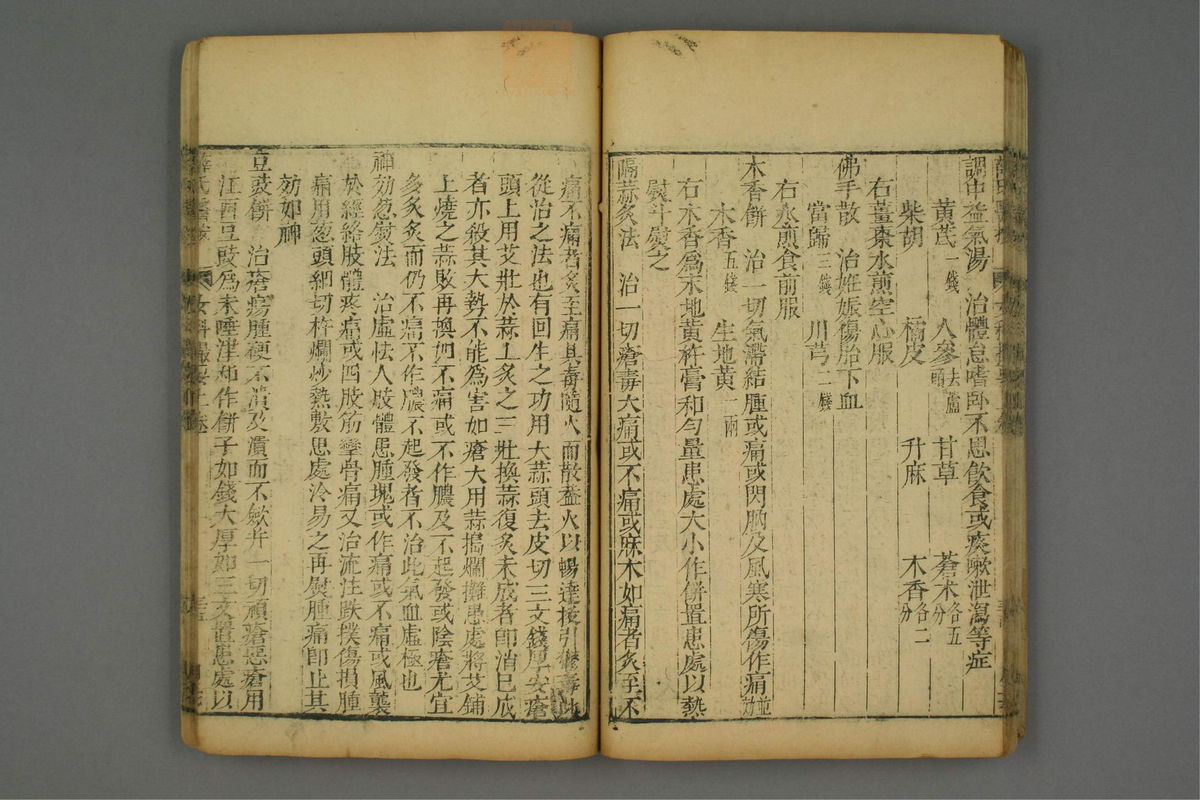 調中益氣湯　治體怠嗜卧不思飲食或痰嗽泄瀉等症
黃芪一錢　人參去蘆頭　甘草　蒼朮各五分
柴胡　橘皮　升麻　木香各二分
右薑棗水煎空心服
佛手散　治姙娠傷胎下血
當歸三錢　川芎二錢
右水煎食前服
木香餅　治一切氣滯結腫或痛或閃肭及風寒所傷作痛並効
木香五錢　生地黃一兩
右木香爲末地黃杵膏和勻量患處大小作餅置患處以熱
熨斗熨之
隔蒜炙法　治一切瘡毒大痛或不痛或麻木如痛者炙至不
痛不痛者炙至痛其毒隨火而散蓋火以暢達拔引鬱毒此
從治之法也有回生之功用大蒜頭去皮切三文錢厚安瘡
頭上用艾壯於蒜上炙之三壯換蒜復炙未成者即消已成
者亦殺其大勢不能爲害如瘡大用蒜搗爛攤患處將艾鋪
上燒之蒜敗再換如不痛或不作膿及不起發或陰瘡尤宜
多炙炙而仍不痛不作膿不起發者不治此氣血虛極也
神効葱熨法　治虛怯人肢體患腫塊或作痛或不痛或風襲
於經絡肢體疼痛或四肢筋攣骨痛又治流注跌撲傷損腫
痛用葱頭細切杵爛炒熱敷患處冷易之再熨腫痛即止其
効如神
豆豉餅　治瘡瘍腫硬不潰及潰而不斂并一切頑瘡惡瘡用
江西豆豉爲末唾津和作餅子如錢大厚如三文置患處以
薛氏醫按　女科撮要上卷